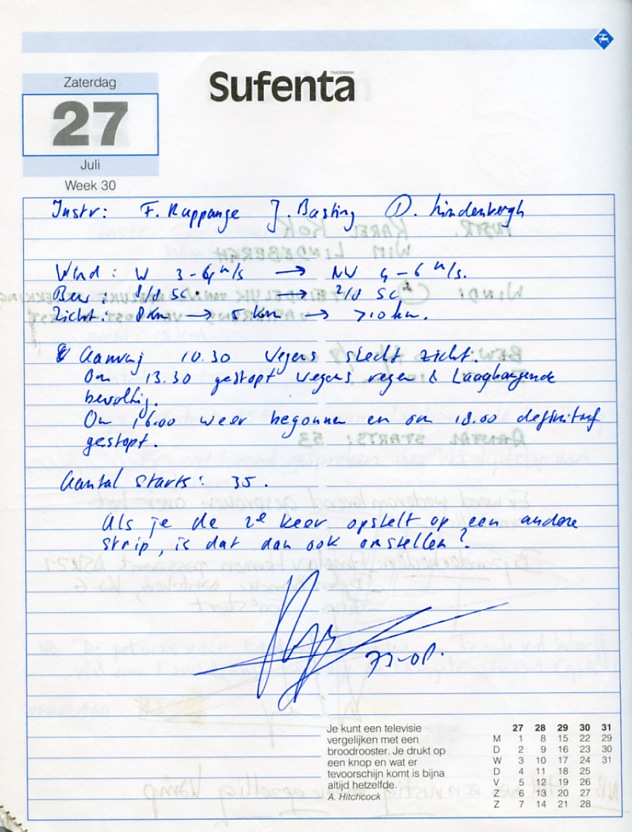 Zaterdag
Sufenta
27
Juli
Week 30
Instr: F. Rappange J. Basting D. Lindenbergh
Wind: W 3-6 m/s → NW 4-6 m/s.
Bew: 8/8 SC. → 2/8 SC
Zicht: 8 km → 5 km → >10 km.
Aanvang 10.30 wegens slecht zicht.
Om 13.30 gestopt wegens regen & Laaghangende
bewolking.
Om 16.00 weer begonnen en om 18.00 definitief
gestopt.
Aantal starts: 35.
Als je de 2e keer opstelt op een andere
strip, is dat dan ook omstellen?
Je kunt een televisie
vergelijken met een
broodrooster. Je drukt op
een knop en wat er
tevoorschijn komt is bijna
altijd hetzelfde.
A. Hitchcock
27 28 29 30 31
M 1 8 15 22 29
D 2 9 16 23 30
W 3 10 17 24 31
D 4 11 18 25
V 5 12 19 26
Z 6 13 20 27
Z 7 14 21 28